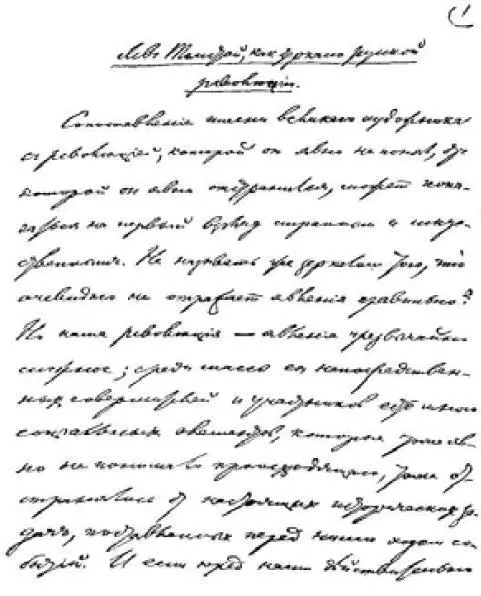 1
Лев Толстой, как зеркало русской
революции.
Сопоставление имени великого художника
с революцией, которой он явно не понял, от
которой он явно отстранился, может пока-
заться на первый взгляд странным и искус-
ственным. Не называть же зеркалом того, что
очевидно не отражает явления правильно?
Но наша революция — явление чрезвычайно
сложное; среди массы ее непосредствен-
ных совершителей и участников есть много
социальных элементов, которые тоже яв-
но не понимали происходящего, тоже от-
странялись от настоящих исторических за-
дач, поставленных перед ними ходом со-
бытий. И если перед нами действительно